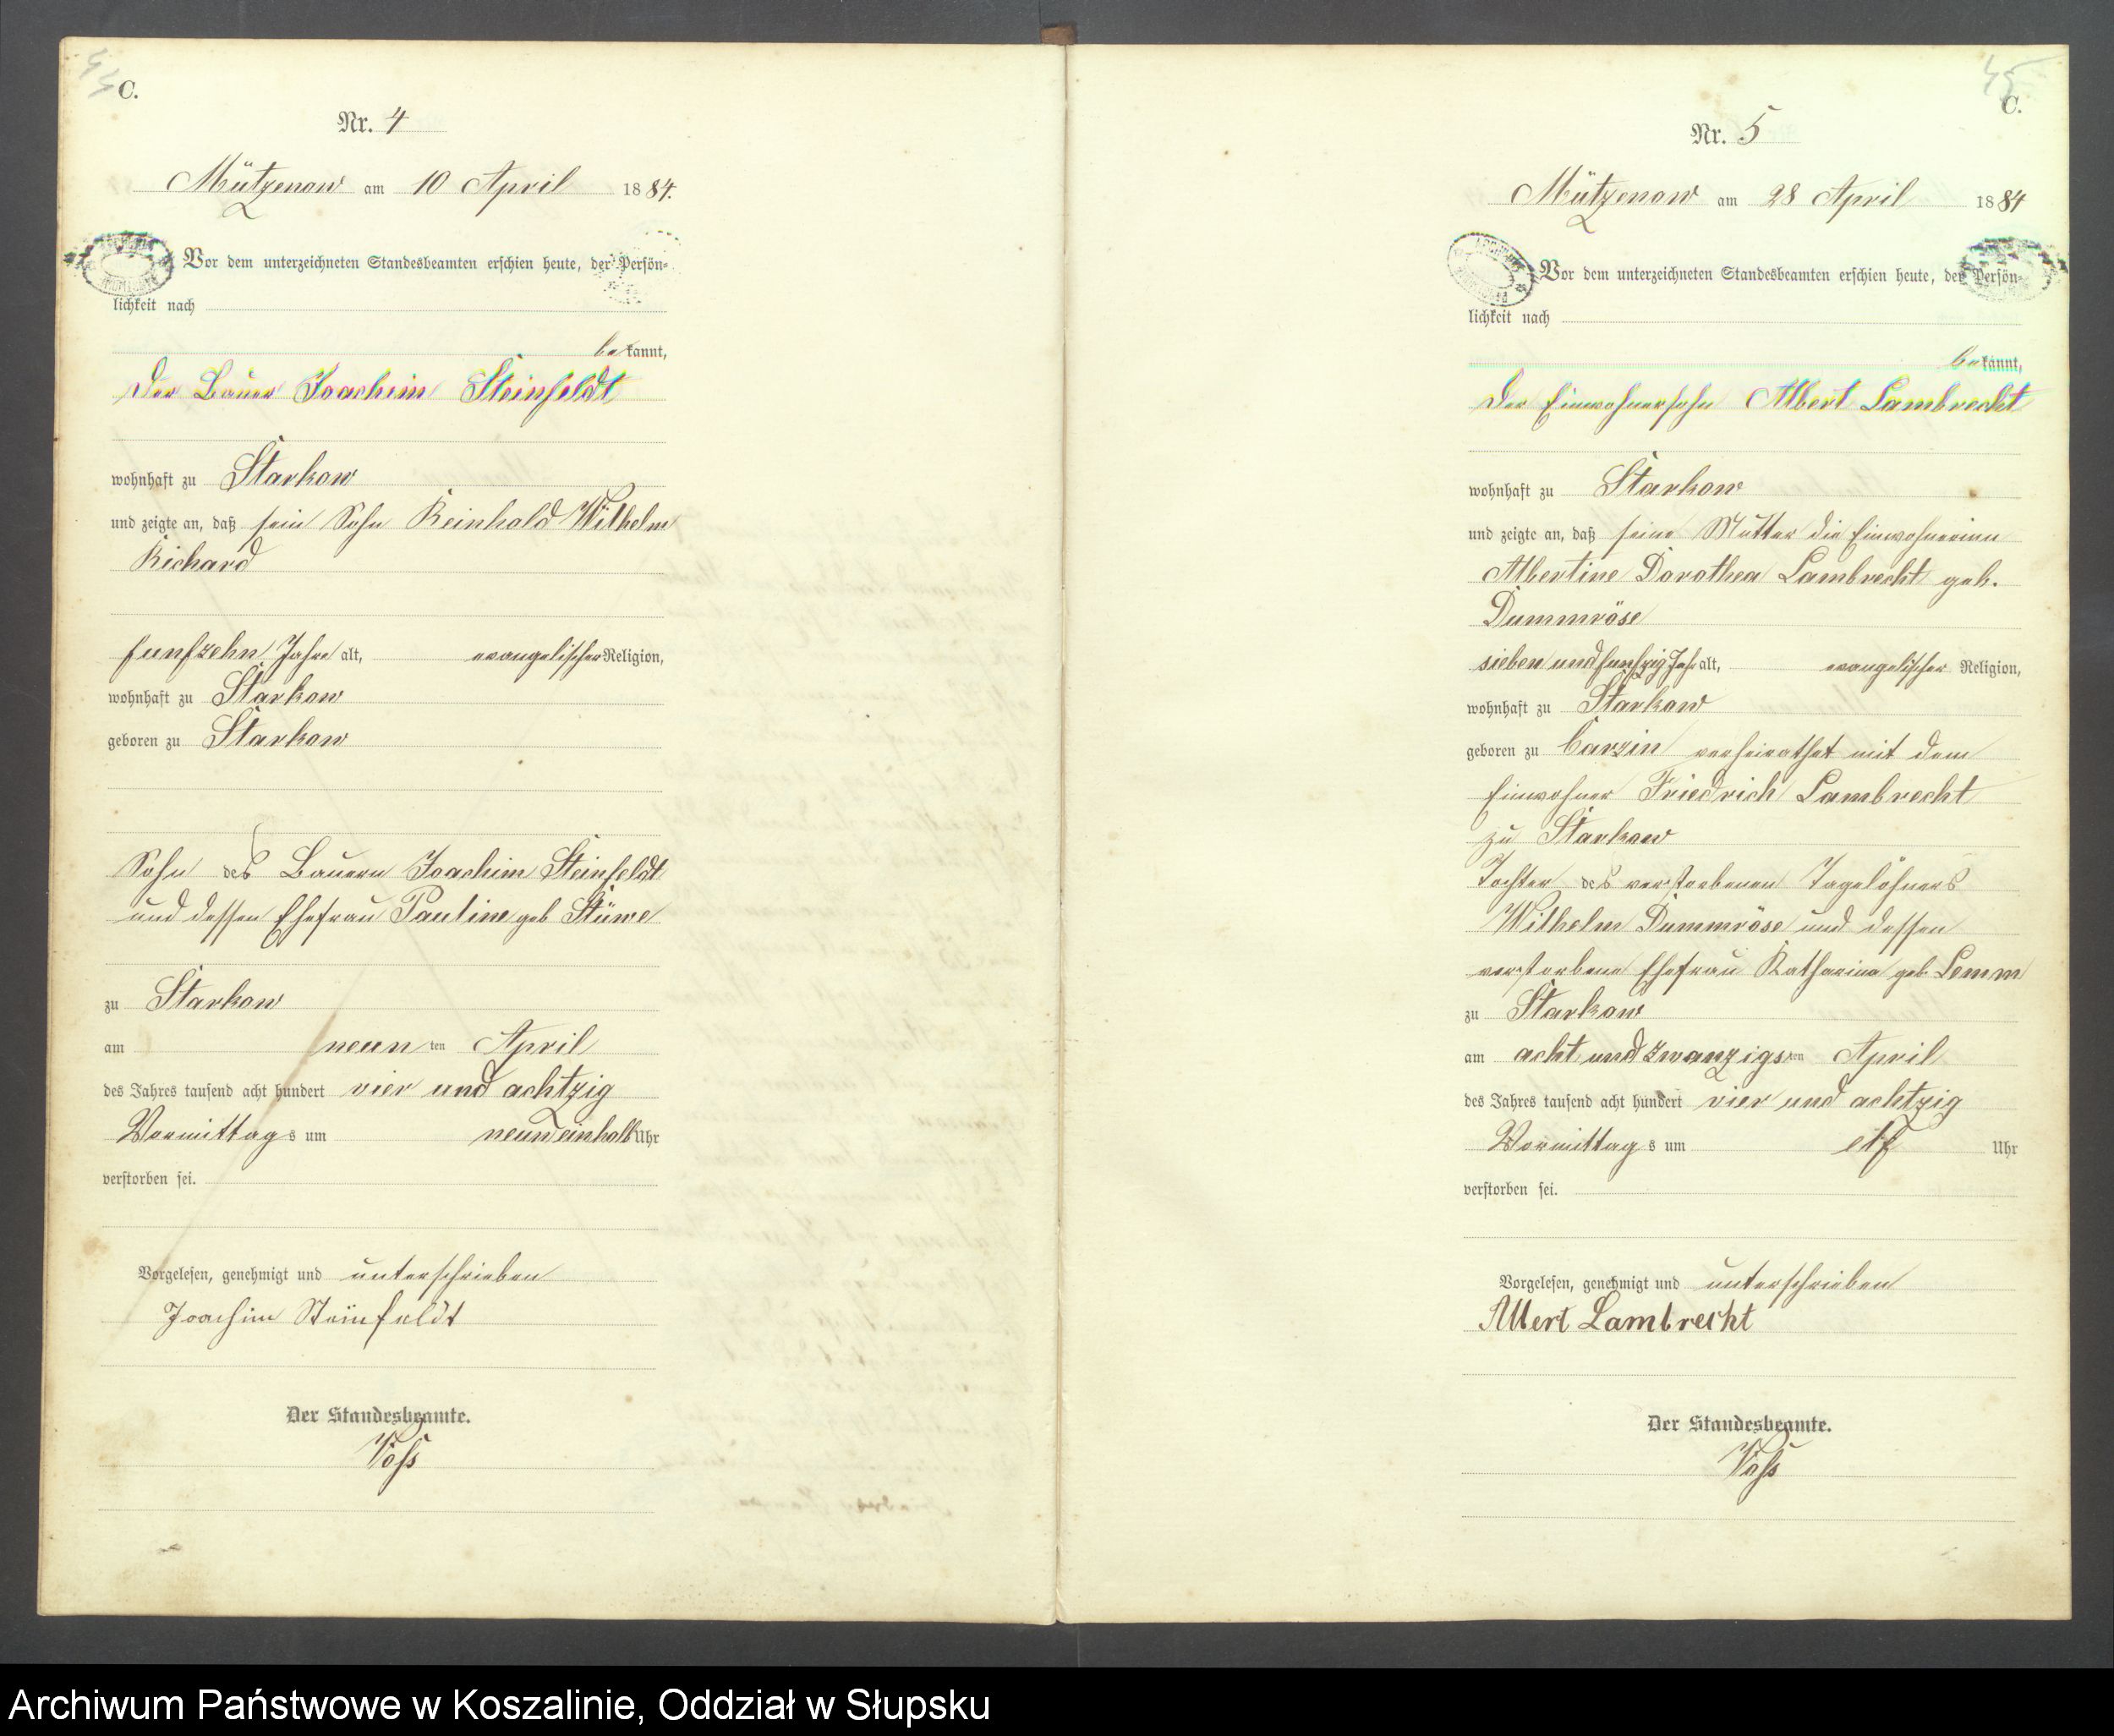 44
C.
Nr. 4
Mützenow am 10 April 1884.
Vor dem unterzeichneten Standesbeamten erschien heute, der Persön-
lichkeit nach
bekannt,
der Bauer Joachim Steinfeldt
wohnhaft zu Starkow
und zeigte an, daß sein Sohn Reinhold Wilhelm
Richard
funfzehn Jahre alt, evangelischer Religion,
wohnhaft zu Starkow
geboren zu Starkow
Sohn des Bauern Joachim Steinfeldt
und dessen Ehefrau Pauline geb Stüwe
zu Starkow
am neunten April
des Jahres tausend acht hundert vier und achtzig
Vormittags um neun einhalb Uhr
verstorben sei.
Vorgelesen, genehmigt und unterschrieben
Joachim Steinfeldt
Der Standesbeamte.
Voß
45
C.
Nr. 5
Mützenow am 28 April 1884
Vor dem unterzeichneten Standesbeamten erschien heute, der Persön-
lichkeit nach
bekannt,
der Einwohnersohn Albert Lambrecht
wohnhaft zu Starkow
und zeigte an, daß seine Mutter die Einwohnerinn
Albertine Dorothea Lambrecht geb.
Dummröse
sieben und funfzig Jahr alt, evangelischer Religion,
wohnhaft zu Starkow
geboren zu Carzin verheirathet mit dem
Einwohner Friedrich Lambrecht
zu Starkow
Tochter des verstorbenen Tagelöhners
Wilhelm Dummröse und dessen
verstorbene Ehefrau Katharina geb Lemm
zu Starkow
am acht und zwanzigsten April
des Jahres tausend acht hundert vier und achtzig
Vormittags um elf Uhr
verstorben sei.
Vorgelesen, genehmigt und unterschrieben
Albert Lambrecht
Der Standesbeamte.
Voß
Archiwum Państwowe w Koszalinie, Oddział w Słupsku